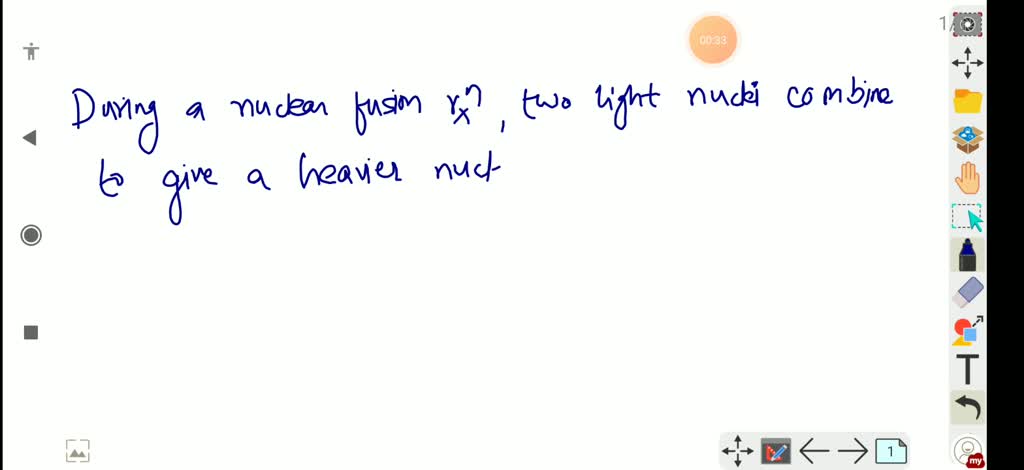 00:33
1/
During a nuclear fusion rxⁿ, two light nuclei combine
to give a heavier nucl
T
1
my